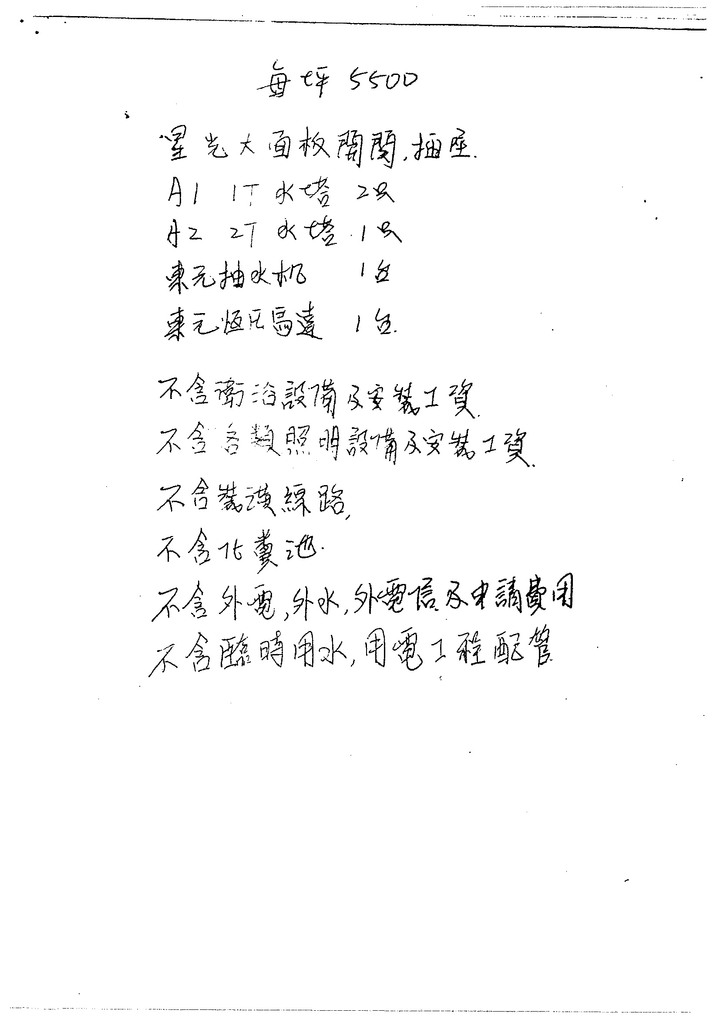 每坪 5500
星光大面板開関,插座.
A1 1T 水塔 2只
A2 2T 水塔 1只
東元抽水机 1台
東元恆圧馬達 1台.
不含衛浴設備及安裝工資.
不含各類照明設備及安裝工資.
不含裝潢線路,
不含化糞池.
不含外電,外水,外電信及申請費用
不含臨時用水,用電工程配管